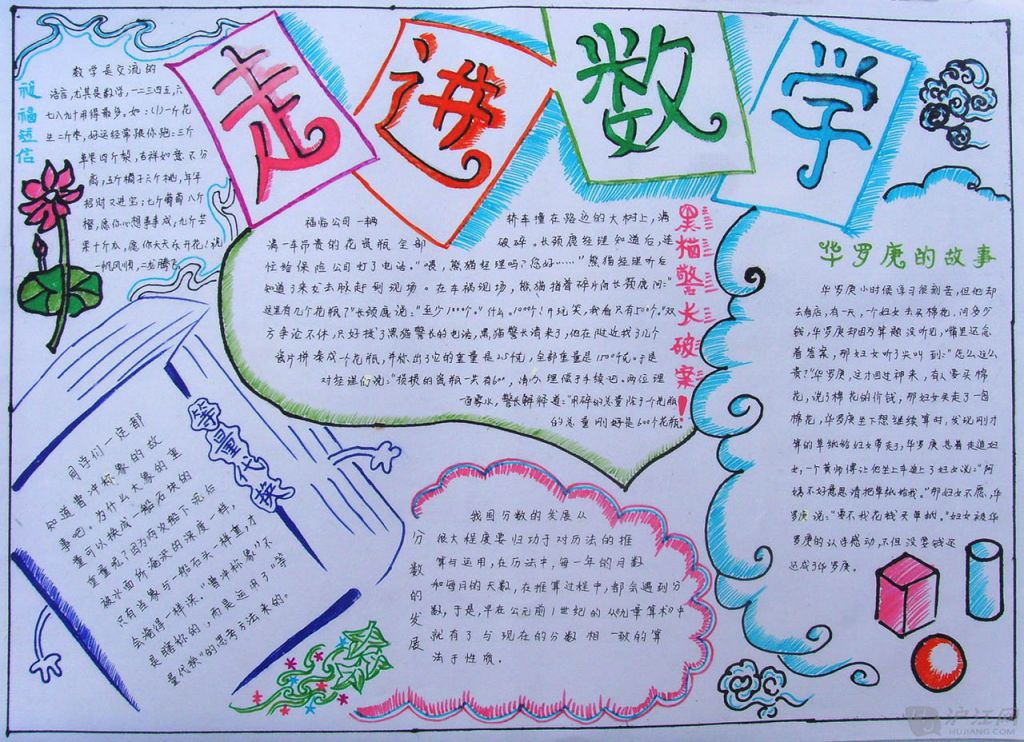 走进数学
祝福短信
数学是交流的
语言,尤其是数字,一二三四五,六
七八九十用得最多。如:(1)一斤花
生二斤枣,好运经常跟你跑;三斤
苹果四斤梨,吉祥如意不分
离;五斤橘子六个桃,年年
招财又进宝;七斤葡萄八斤
橙,愿你心想事事成;九斤芒
果十斤瓜,愿你天天乐开花!祝
一帆风顺,二龙腾飞
黑猫警长破案!
福临公司一辆
满一车昂贵的花瓷瓶全部
忙给保险公司打了电话。“喂,熊猫经理吗?您好……”熊猫经理听后
知道了来龙去脉赶到现场。在车祸现场,熊猫指着碎片问长颈鹿问:“
这里有几个花瓶?”长颈鹿说:“至少1000个。”什么,1000个!开玩笑,我看只有500个。”双
方争论不休,只好找了黑猫警长的电话,黑猫警长清来了,他在附近找了几个
瓷片拼凑成一个花瓶,并称出了它的重量是2.5千克,全部重量是1500千克。于是
对经理们说:“损损的瓷瓶一共有600,请办理
一百雾水,警长解释道:“用碎的总重除于个花瓶
的总重刚好是600个花瓶。
轿车撞在路边的大树上,满
破碎。长颈鹿经理知道后,连
华罗庚的故事
华罗庚小时候学习很刻苦,但他却
去看店,有一天,一个妇女去买棉花,问多少
钱,华罗庚却因为算题没听见,嘴里还念
着答案,那妇女听了尖叫到:“怎么这么
贵?”华罗庚,这才回过神来,有人要买棉
花,说了棉花的价钱,那妇女买走了一包
棉花,华罗庚坐下想继续算时,发现刚才
算的草纸给妇女带走了,华罗庚急着去追妇
女,一个黄师傅让他坐上车追上了妇女说:“阿
姨不好意思请把草纸给我。”那妇女不愿,华
罗庚说:“要不我花钱买草纸。”妇女被华
罗庚的认真感动,不但没要钱还
还成了华罗庚。
等量代换
同学们一定都
知道曹冲称象的故
事吧。为什么大象的重
量可以换成一船石块的
重量呢?因为两次船下沉后
被水面所淹没的深度一样,
只有当象与一船石头一样重,才
会淹得一样深。“曹冲称象”不
是瞎称的,而是运用了“等
量代换”的思考方法来的。
分数的发展
我国分数的发展从
很大程度要归功于对历法的推
算与运用,在历法中,每一年的月数
和每月的天数,在推算过程中,都会遇到分
数,于是,早在公元前1世纪的《九章算术》中
就有了与现在的分数相一致的算
法于性质。
沪江网
HUJIANG.COM